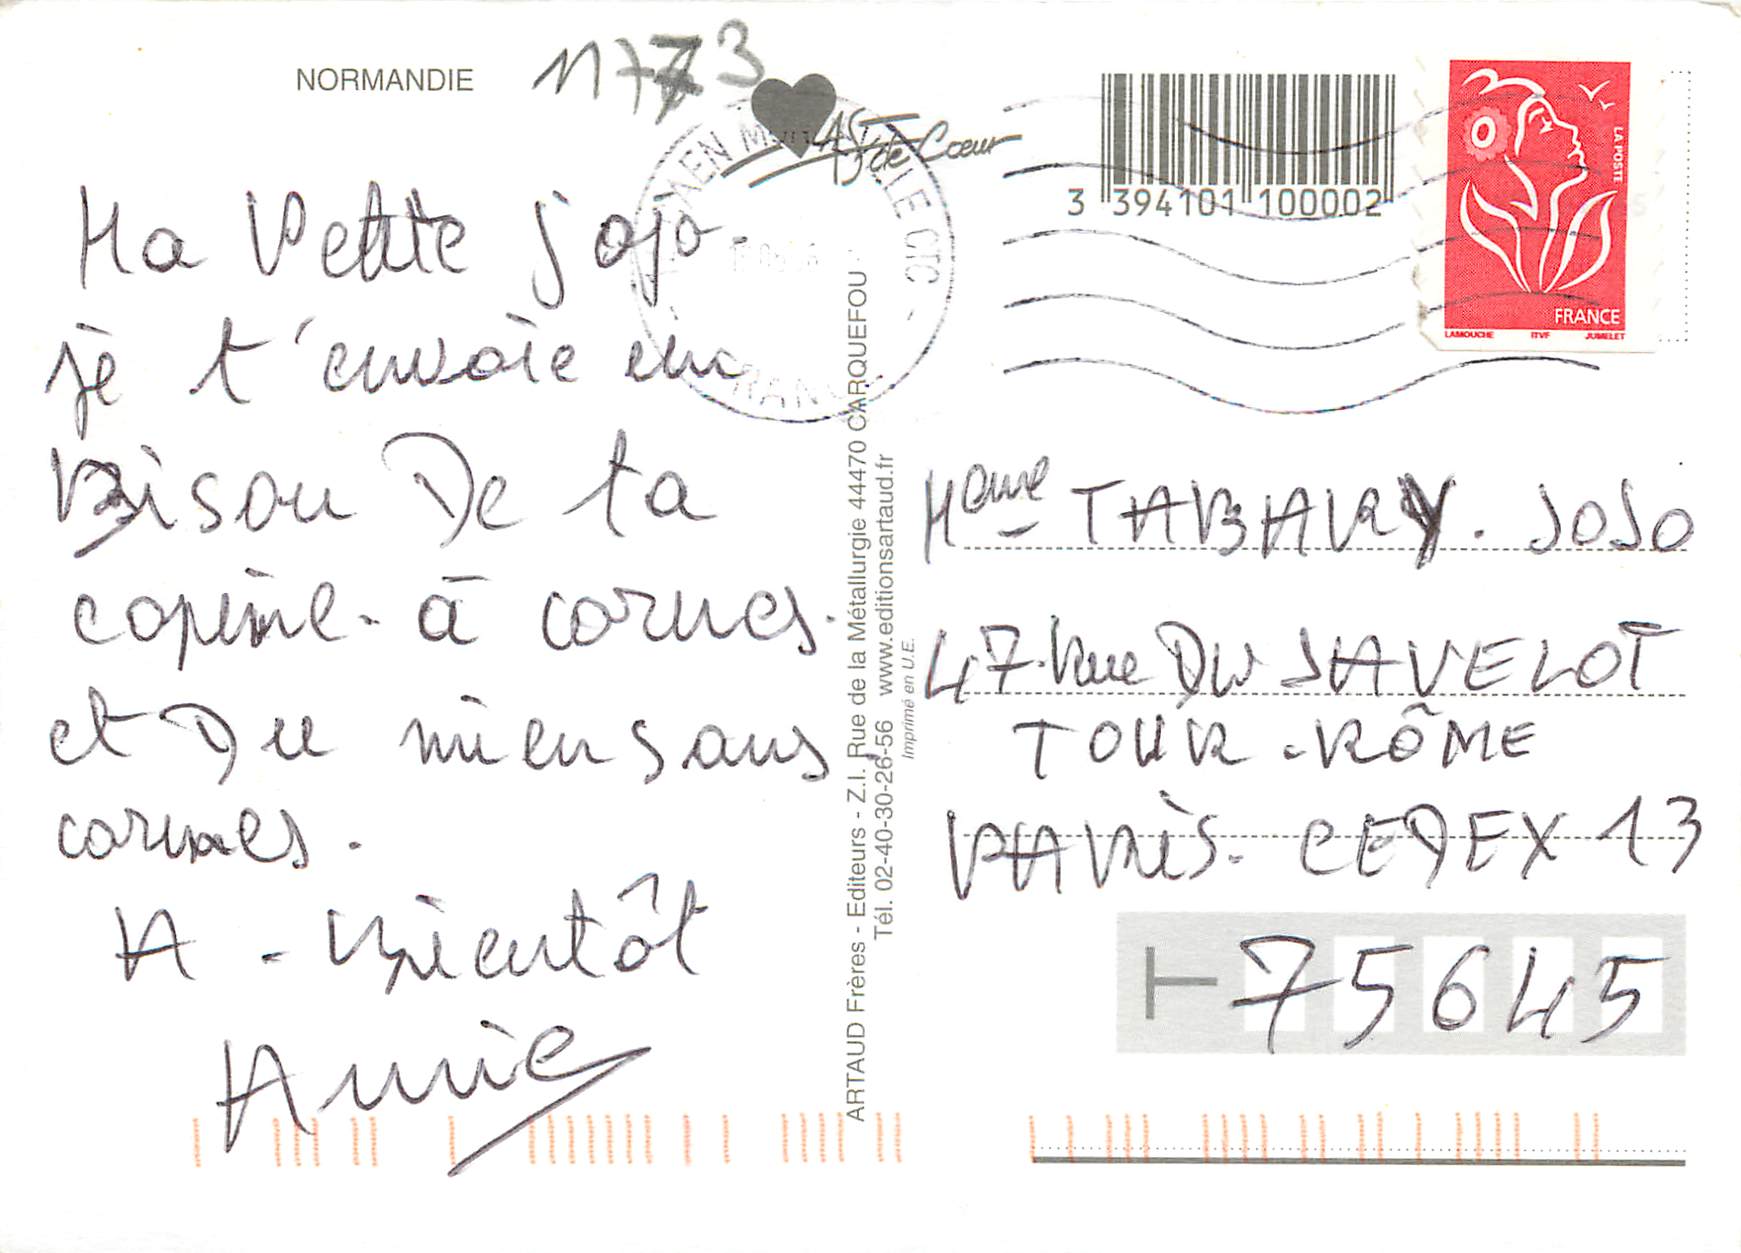 NORMANDIE
As de Cœur
3 394101 100002
LA POSTE
FRANCE
LAMOUCHE ITVF JUMELET
Ma Petite jojo
je t'envoie un
Bisou De ta
copine - à cornes.
et Du mien sans
cornes.
A - Bientôt
Annie
ARTAUD Frères - Editeurs - Z.I. Rue de la Métallurgie 44470 CARQUEFOU
Tél. 02-40-30-26-56 www.editionsartaud.fr
Imprimé en U.E.
Meme TABARY. JOJO
47. Rue DU JAVELOT
TOUR - RÔME
PARIS. CEDEX 13
75645